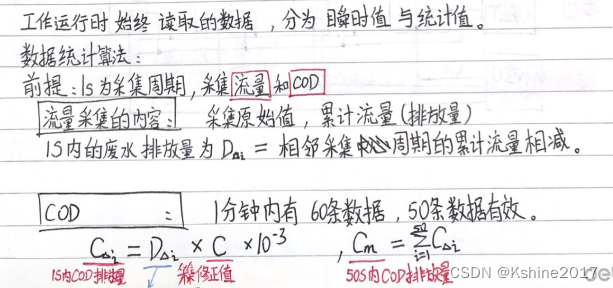 工作运行时 始终 读取的数据，分为 瞬时值 与统计值。
数据统计算法：
前提：1s为采集周期，采集流量和COD
流量采集的内容： 采集原始值，累计流量(排放量)
1S内的废水排放量为 D△i = 相邻采集周期的累计流量相减。
COD ： 1分钟内有 60条数据，50条数据有效。
C△i = D△i × C ×10⁻³ ，Cm = ∑ C△i i=1
1S内COD排放量 修正值 50S内COD排放量
CSDN @Kshine2017